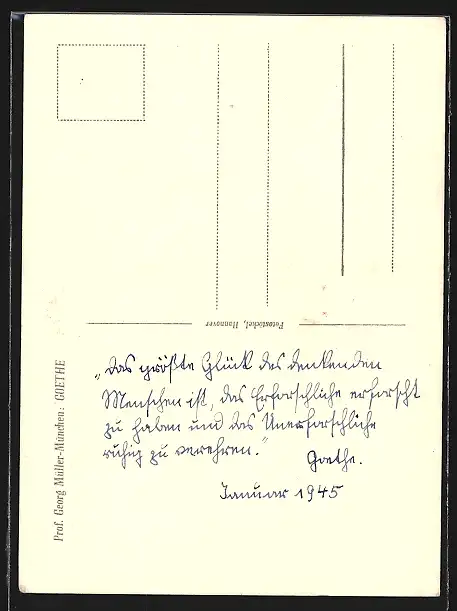 Fotostöckel, Hannover
Prof. Georg Müller-München: GOETHE
„Das größte Glück des denkenden
Menschen ist, das Erforschliche erforscht
zu haben und das Unerforschliche
ruhig zu verehren.“
Goethe.
Januar 1945